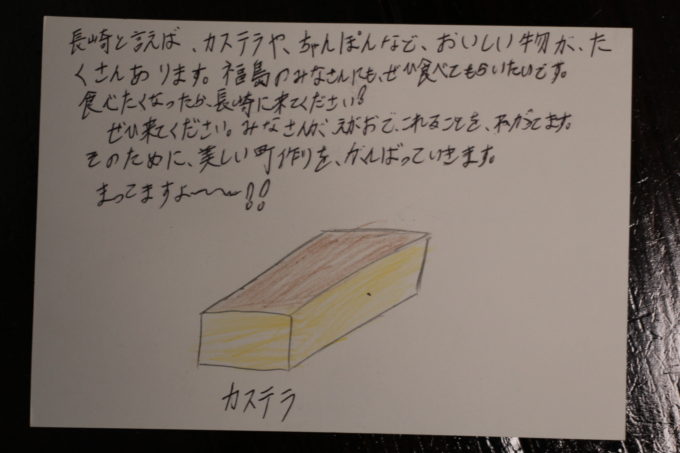 長崎と言えば、カステラや、ちゃんぽんなど、おいしい物が、た
くさんあります。福島のみなさんにも、ぜひ食べてもらいたいです。
食べたくなったら、長崎に来てください!
ぜひ来てください。みなさんが、えがおで、これることを、ねがってます。
そのために、美しい町作りを、がんばっていきます。
まってますよ〜〜〜!!
カステラ